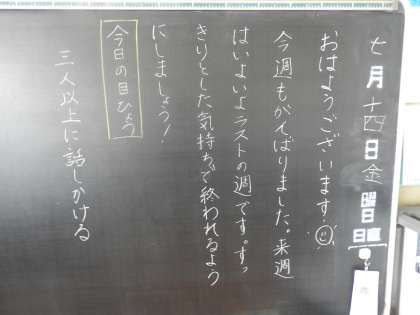 七月十四日金曜日
日直
おはようございます
今週もがんばりました。来週
はいよいよラストの週です。すっ
きりとした気持ちで終われるよう
にしましょう!
今日の目ひょう
三人以上に話しかける